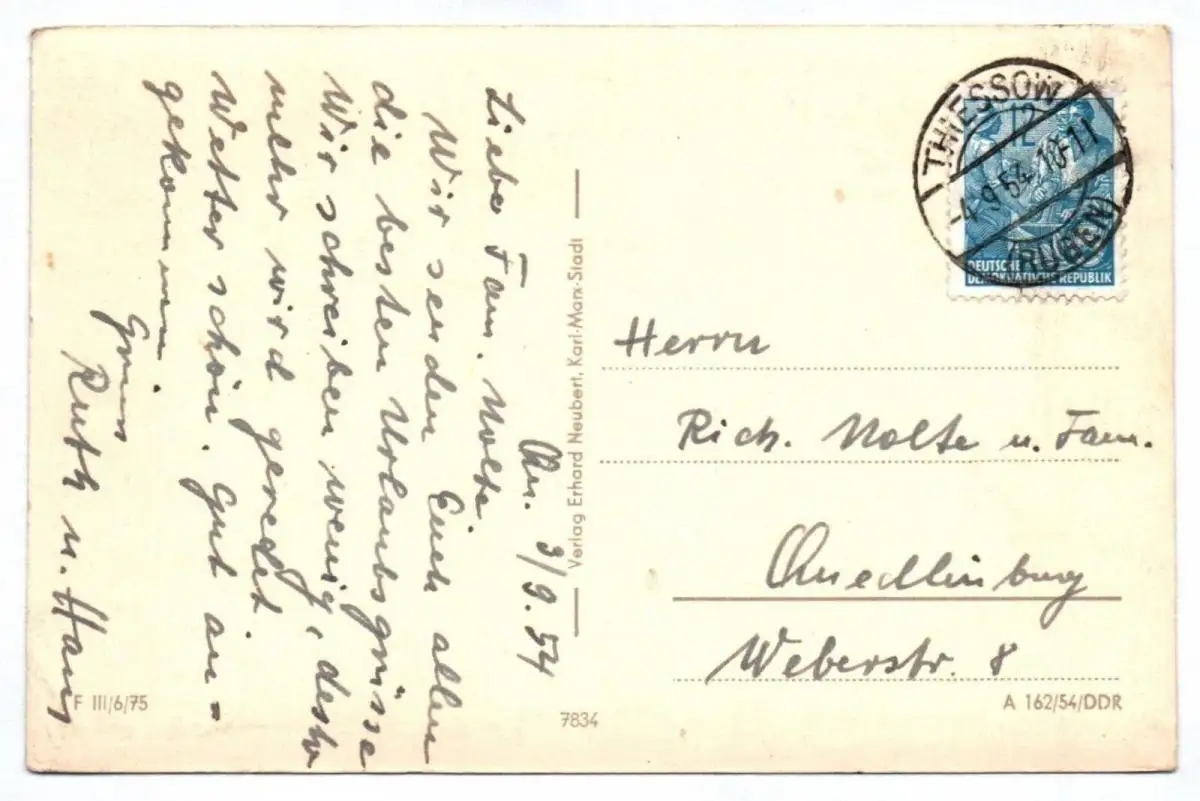 Qu. 3/9.54
Liebe Fam. Nolte
Wir senden Euch allen
die besten Urlaubsgrüsse
Wir schreiben wenig, desto
mehr wird geredet.
Wetter schön. Gut an=
gekommen.
Gruss
Ruth u. Hans
Verlag Erhard Neubert, Karl-Marx-Stadt
THIESSOW
-4.9.54.10-11
(RÜGEN)
12
DEUTSCHE
DEMOKRATISCHE REPUBLIK
Herrn
Rich. Nolte u. Fam.
Quedlinburg
Weberstr. 8
F III/6/75
7834
A 162/54/DDR